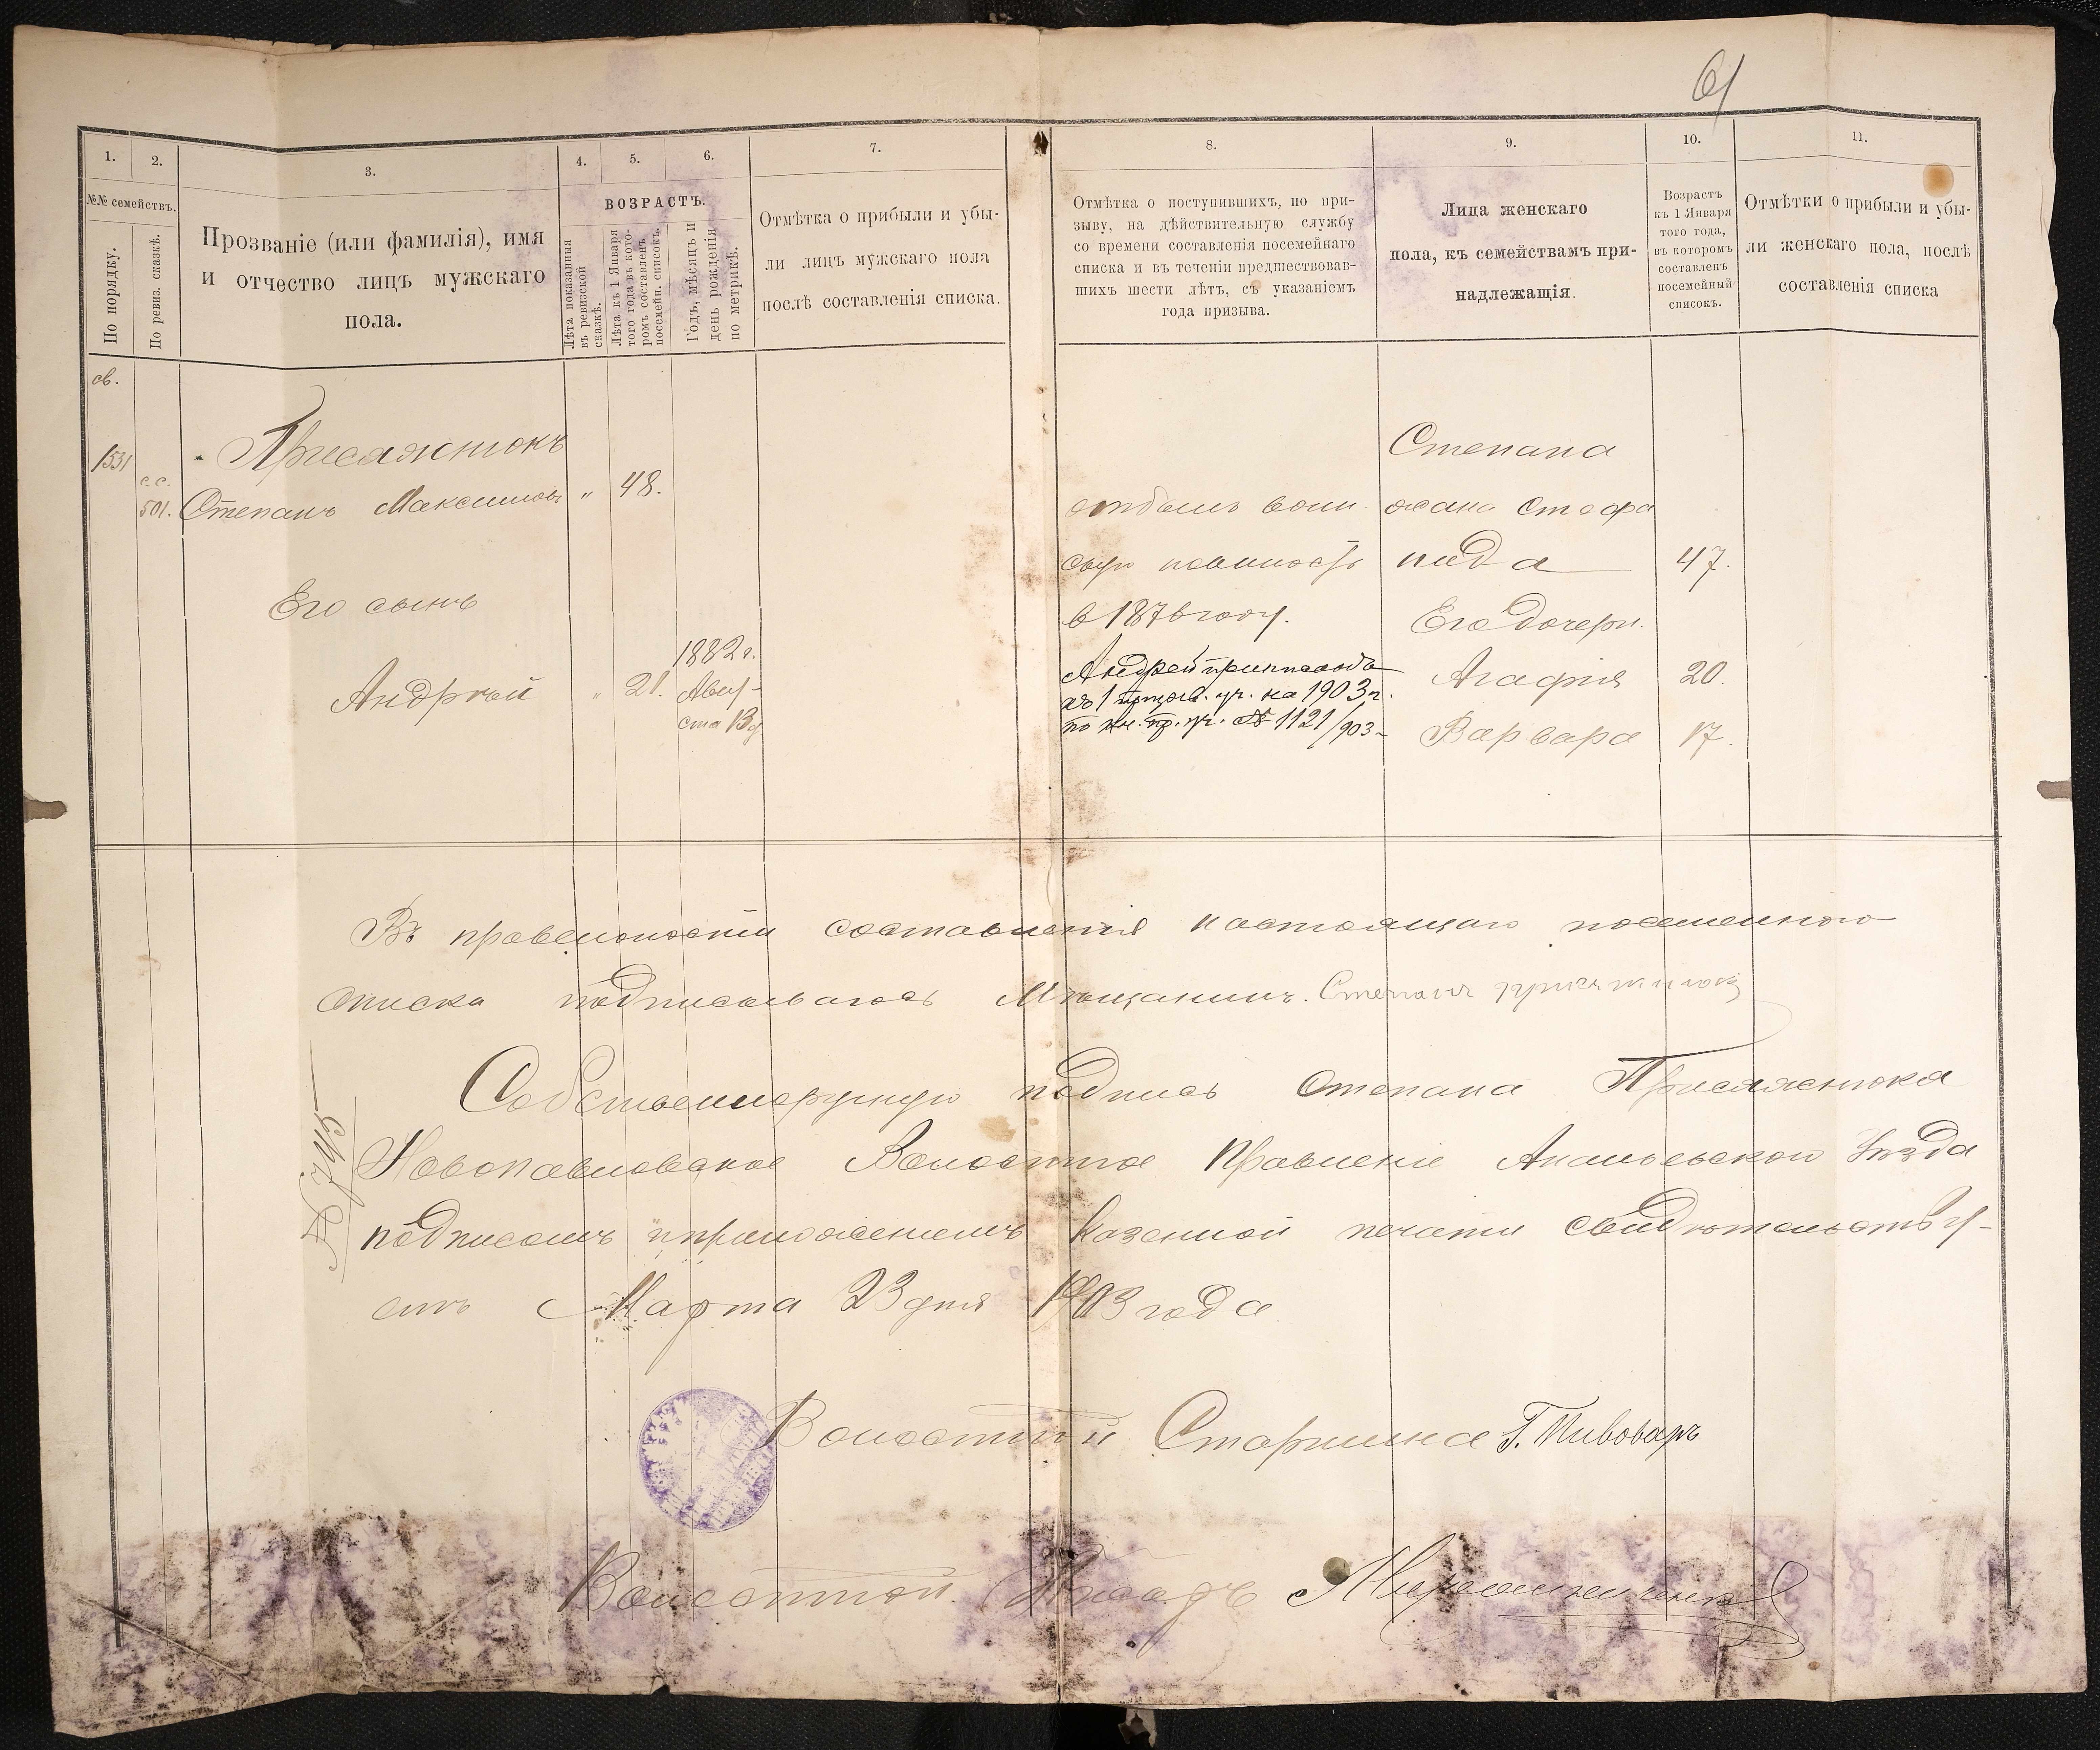 61
1.
2.
3.
4.
5.
6.
7.
8.
9.
10.
11.
№№ семействъ.
По порядку.
По ревиз. сказкѣ.
Прозваніе (или фамилія), имя
и отчество лицъ мужскаго
пола.
ВОЗРАСТЪ.
Лѣта показанныя
въ ревизской
сказкѣ.
Лѣта къ 1 Января
того года въ кото-
ромъ составленъ
посемейн. списокъ.
Годъ, мѣсяцъ и
день рожденія
по метрикѣ.
Отмѣтка о прибыли и убы-
ли лицъ мужскаго пола
послѣ составленія списка.
Отмѣтка о поступившихъ, по при-
зыву, на дѣйствительную службу
со времени составленія посемейнаго
списка и въ теченіи предшествовав-
шихъ шести лѣтъ, съ указаніемъ
года призыва.
Лица женскаго
пола, къ семействамъ при-
надлежащія.
Возрастъ
къ 1 Января
того года,
въ которомъ
составленъ
посемейный
списокъ.
Отмѣтки о прибыли и убы-
ли женскаго пола, послѣ
составленія списка
св.
1531
с.с.
501.
Присяжнюкъ
Степанъ Максимовъ
" 48.
Его сынъ
Андрѣй
" 21.
1882 г.
Авгу-
ста 13 д
отбылъ воин
скую повинность
в 187 году.
Андрей приписанъ
къ 1 призыв. уч. на 1903 г.
по кн. пр. уч. № 1121/903
Степана
жена Стефа
нида
47.
Его дочери.
Агафія
20.
Варвара
17.
Въ правильности составленія настоящаго посемейнаго
списка подписываюсь Мѣщанинъ. Степанъ присяжнюкъ
Собственноручную подпись Степана Присяжнюка
Новопавловское Волостное Правленіе Ананьевскаго Уѣзда
подписомъ и приложеніемъ казенной печати свидѣтельству-
етъ Марта 23 дня 1903 года.
№ 795
Волостной Старшина Г. Пивоваръ
Волостной Писарь